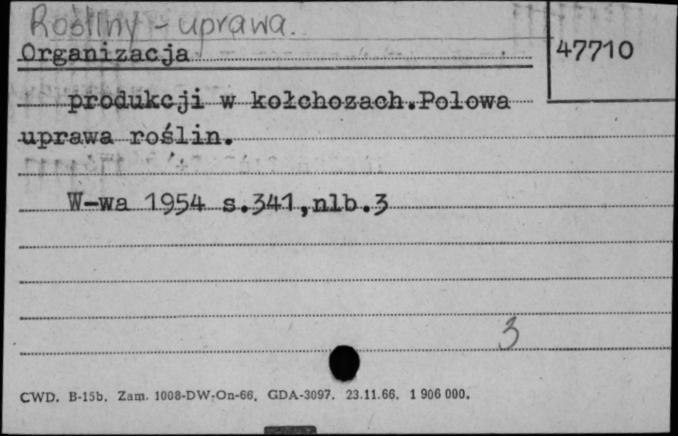 Rośliny - uprawa.
Organizacja
47710
produkcji w kołchozach.Polowa
uprawa roślin.
W-wa 1954 s.341,nlb.3
3
CWD. B-15b. Zam. 1008-DW-On-66. GDA-3097. 23.11.66. 1 906 000.